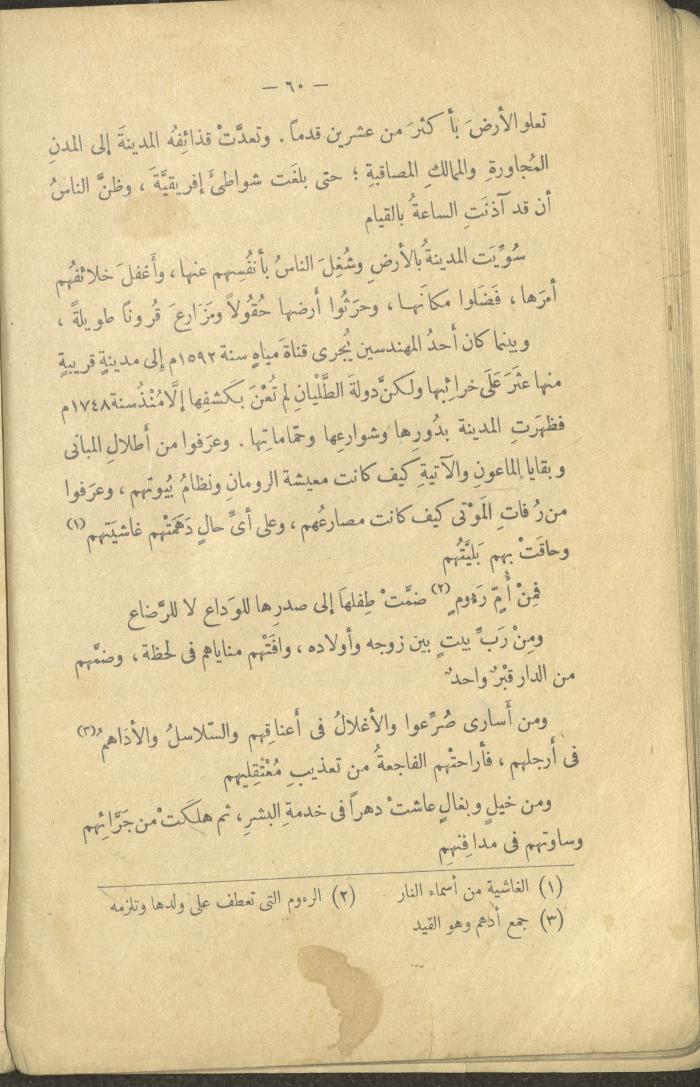 — ٦٠ —
تعلو الأرضَ بأكثرَ من عشرين قدماً . وتعدَّتْ قذائِفُه المدينةَ إلى المدنِ
المُجاورةِ والممالكِ المصاقبةِ ؛ حتى بلغَت شواطئَ إفريقيَّةَ ، وظنَّ الناسُ
أن قد آذنَتِ الساعةُ بالقيام
سُوِّيَت المدينةُ بالأرضِ وشُغِلَ الناسُ بأنفُسِهم عنها ، وأَغفلَ خلائفُهم
أمرَها ، فَضَلوا مكانَها ، وحرَثُوا أرضها حُقُولاً ومَزَارعَ قُرونًا طويلةً ،
وبينما كان أحدُ المهندسين يُجرى قناةَ مياهٍ سنة ١٥٩٢م إلى مدينةٍ قريبةٍ
منها عثَرَ عَلَى خرائِبها ولكنَّ دولةَ الطَّلْيانِ لم تُعْنَ بكَشفِها إلَّا مُنْذُ سنة ١٧٤٨م
فظهرَتِ المدينة بدُورِها وشوارعِها وحمّاماتِها . وعرَفوا من أَطلالِ المبانى
وبقايا الماعونِ والآتيةِ كيف كانت معيشة الرومانِ ونظامُ بُيوتهم ، وعرَفوا
من رُفاتِ المَوْتى كيف كانت مصارعُهم ، وعلى أىِّ حالٍ دَهَمَتْهم غاشيَتهم (١)
وحاقَتْ بهم بَليَّتُهم
فمِنْ أُمٍّ رَءومٍ (٢) ضمَّتْ طِفلهَا إلى صدرِها للوَداع لا للرَّضاع
ومِنْ رَبِّ بيتٍ بين زوجه وأولاده ، وافَتْهم مناياهم فى لحظة ، وضمَّهم
من الدار قبْرٌ واحدٌ
ومن أَسارى صُرِّعوا والأغلالُ فى أعناقِهم والسّلاسلُ والأداهمُ (٣)
فى أَرجلهم ، فأراحتْهم الفاجعةُ من تعذيبِ مُعْتقِليهم
ومن خيلٍ وبغالٍ عاشتْ دهراً فى خدمةِ البشرِ ، ثم هلكَتْ من جَرَّائِهم
وساوتهم فى مدافِنهِم
(١) الغاشية من أسماء النار (٢) الرءوم التى تعطف على ولدها وتلزمه
(٣) جمع أدهم وهو القيد